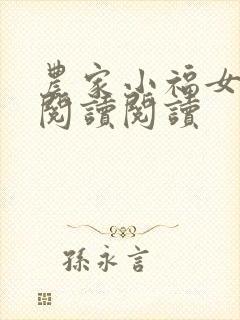 農家小福女
閱讀閱讀
孫永言